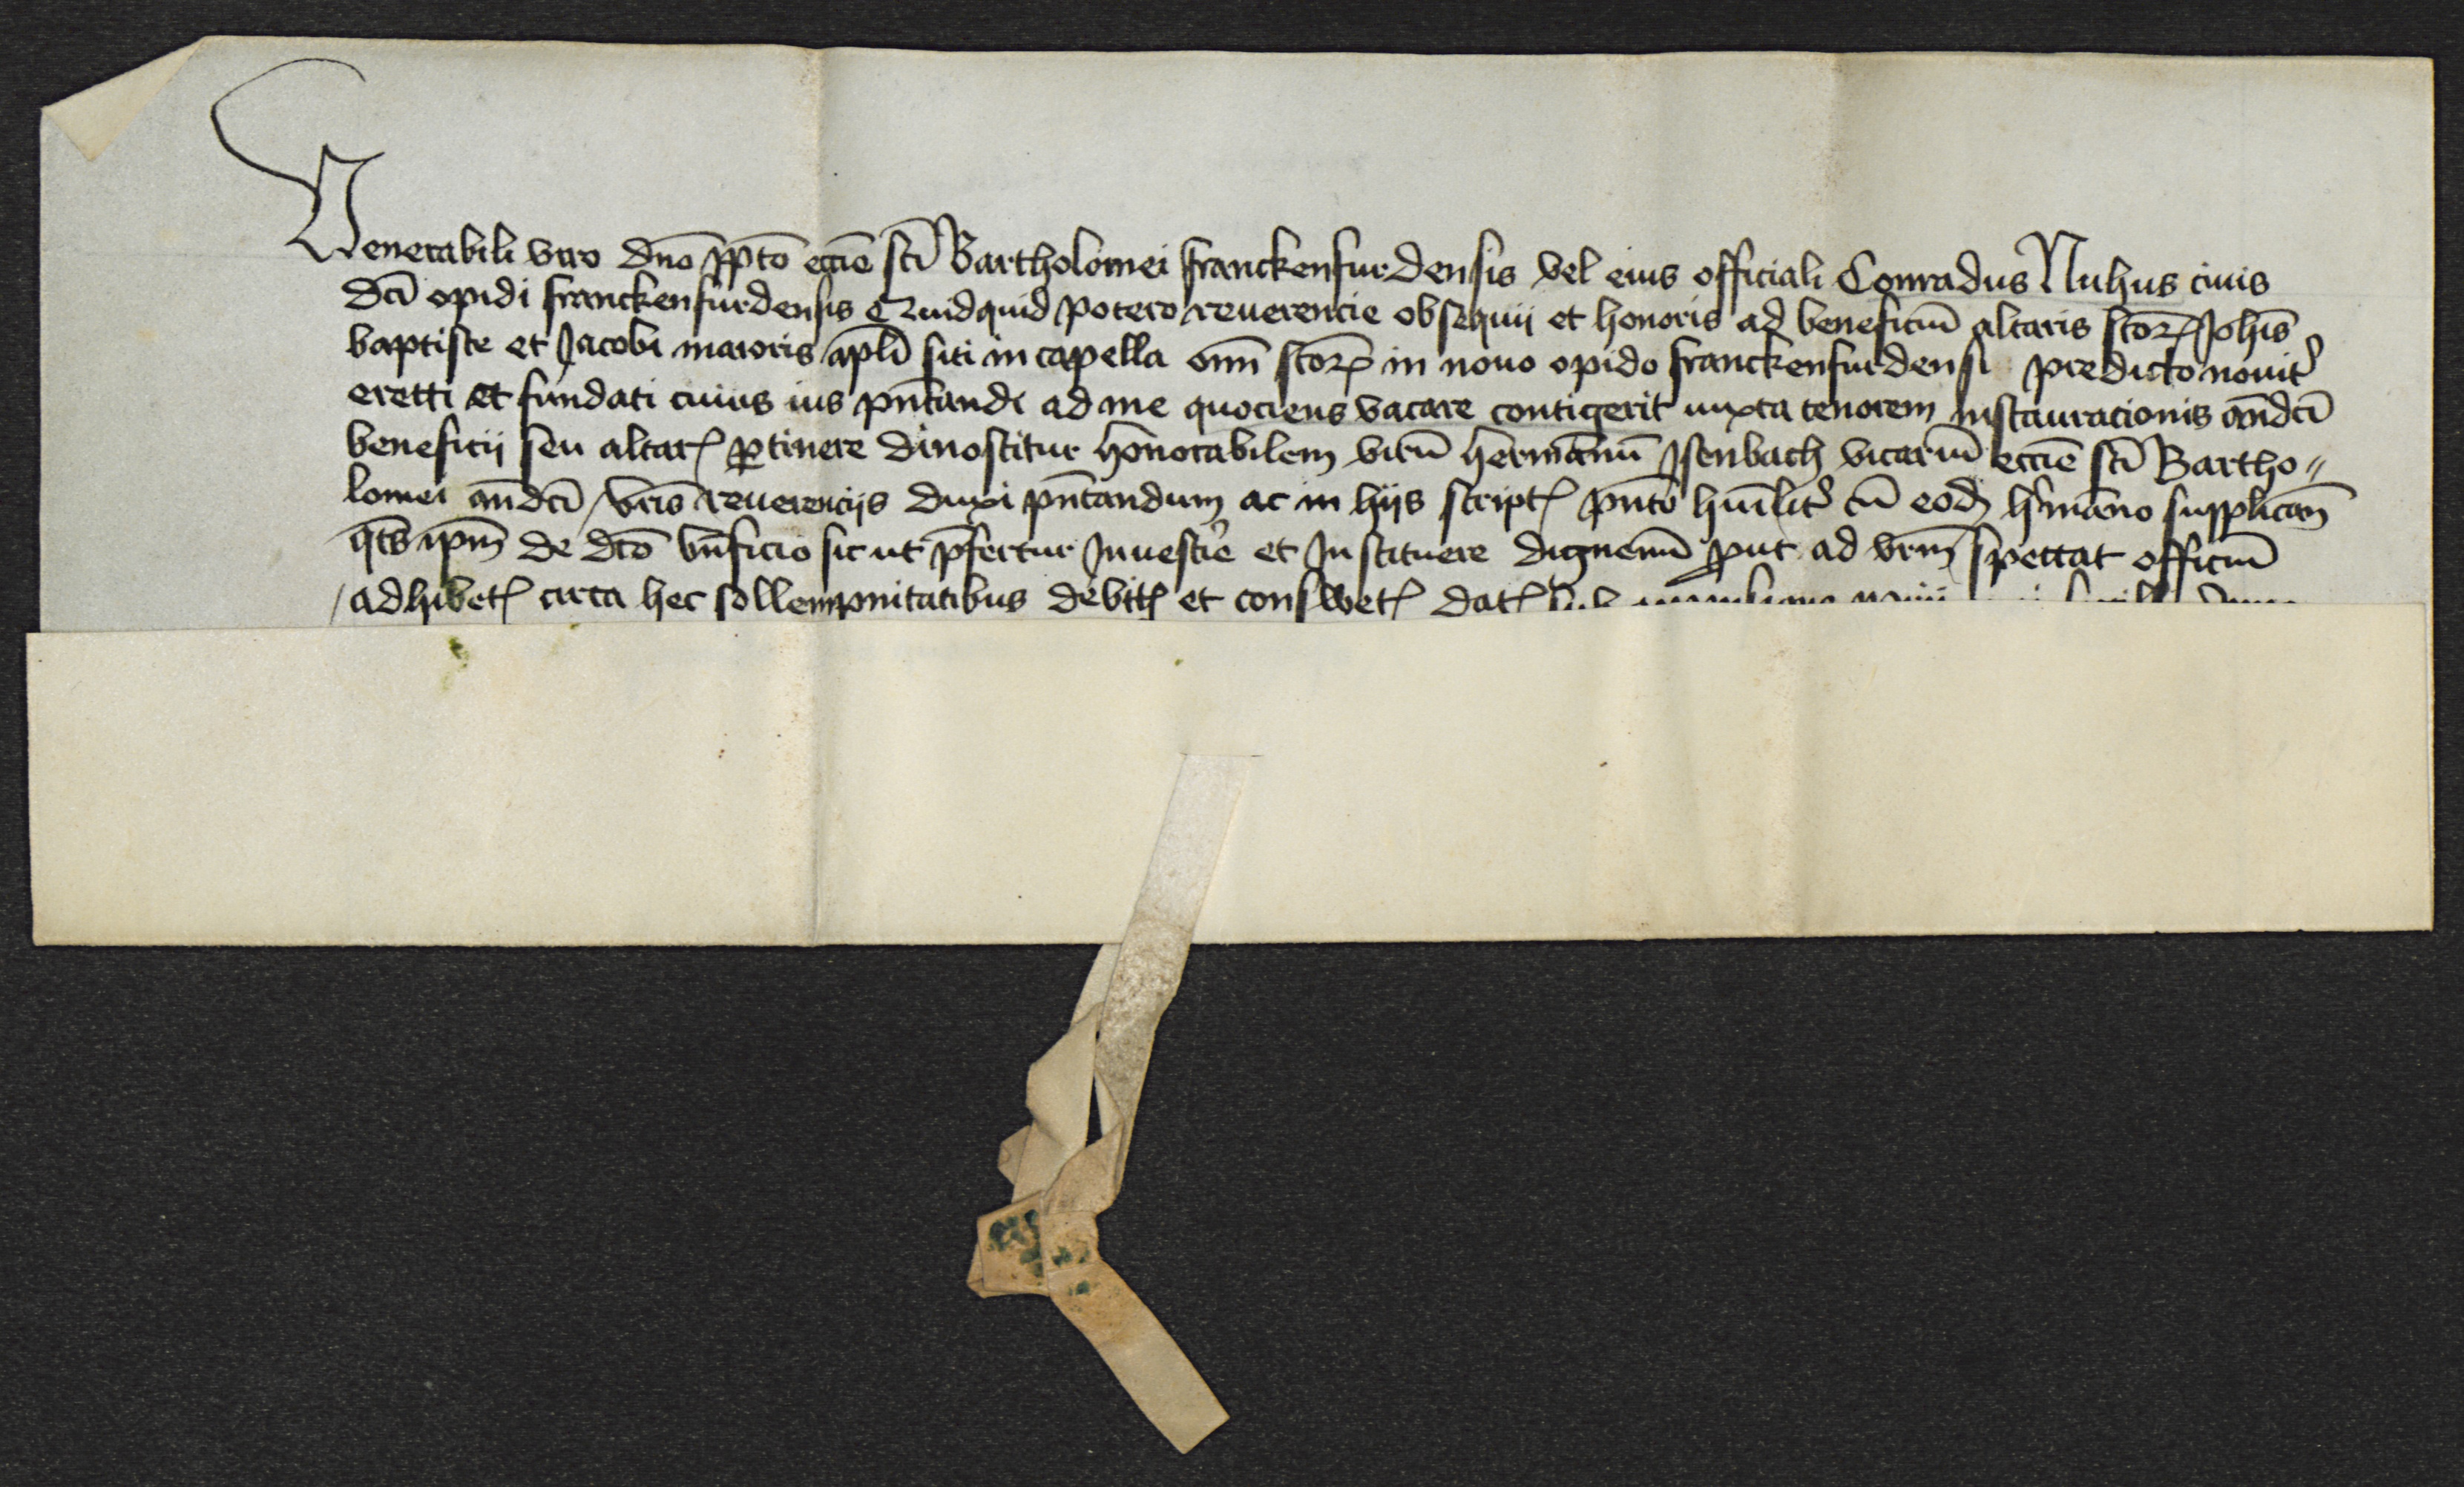 Venerabili viro dno ppto eccie sci Bartholomei franckenfurdensis vel eius officiali Conradus Nuhus ciuis
dci opidi franckenfurdensis Quidquid potero reuerencie obsequii et honoris ad beneficiu altaris scorꝝ Johis
baptiste et Jacobi maioris apli siti in capella omi scorꝝ in nouo opido franckenfurdensi predicto nouit
erecti et fundati cuius ius pntandi ad me quociens vacare contigerit iuxta tenorem instauracionis andci
beneficii seu altarꝭ ꝑtinere dinoscitur honorabilem viru hermannu Jsenbach vicariu eccie sci Bartho〃
lomei andci vris reuerencijs duxi pntandum ac in hijs scriptꝭ pnto humilit cu eod hmanno supplicans
qts ipm de dco bnficio sic ut pfertur Jnuestire et Jnstituere dignemi ꝓut ad vrm spectat officiu
adhibetꝭ circa hec sollempnitatibus debitꝭ et conswetꝭ datꝭ sub